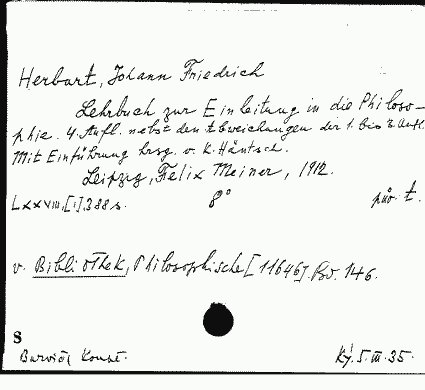 Herbart, Johann Friedrich
Lehrbuch zur Einleitung in die Philoso-
phie. 4. Aufl. nebst den Abweichungen der 1. bis 3. Aufl.
Mit Einführung hrsg. v. K. Häntsch.
Leipzig, Felix Meiner, 1912.
LXXVIII, [1], 388 s. 8° pův. t.
v. Bibliothek, Philosophische [11646] Bd. 146.
S
Ký. 5. III. 35.